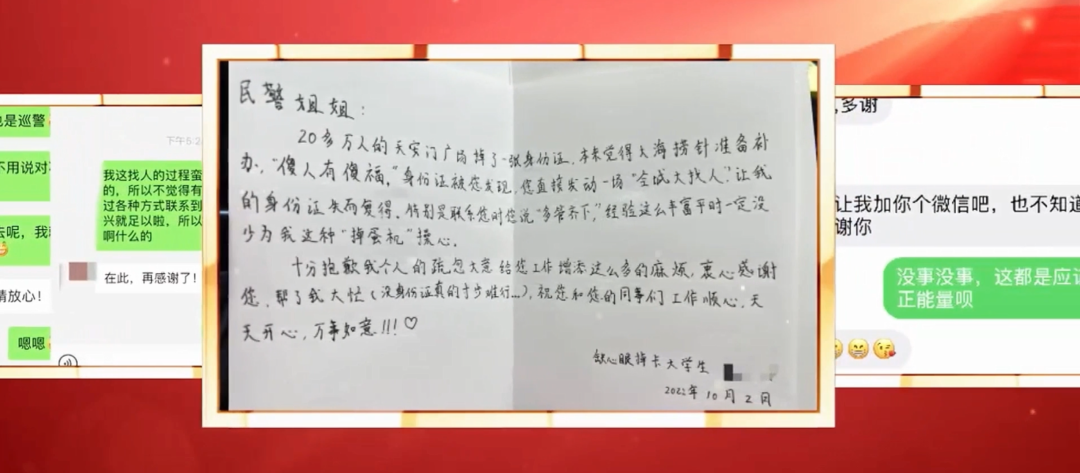 也是巡警
不用说对不
去呢，我
请放心！
嗯嗯
下午5:2
我这找人的过程蛮
的，所以不觉得有
过各种方式联系到
兴就足以啦，所以
啊什么的
在此，再感谢了！
民警姐姐：
20多万人的天安门广场掉了一张身份证，本来觉得大海捞针准备补
办，“傻人有傻福，”身份证被您发现，您直接发动一场“全城大找人”，让我
的身份证失而复得。特别是联系您时您说“多带齐下，”经验这么丰富平时一定没
少为我这种“掉蛋机”操心。
十分抱歉我个人的疏忽大意给您工作增添这么多的麻烦，衷心感谢
您，帮了我大忙（没身份证真的寸步难行…），祝您和您的同事们工作顺心，天
天开心，万事如意!!!♡
缺心眼掉卡大学生
2022年10月2日
多谢
让我加你个微信吧，也不知道
谢你
没事没事，这都是应该
正能量呗